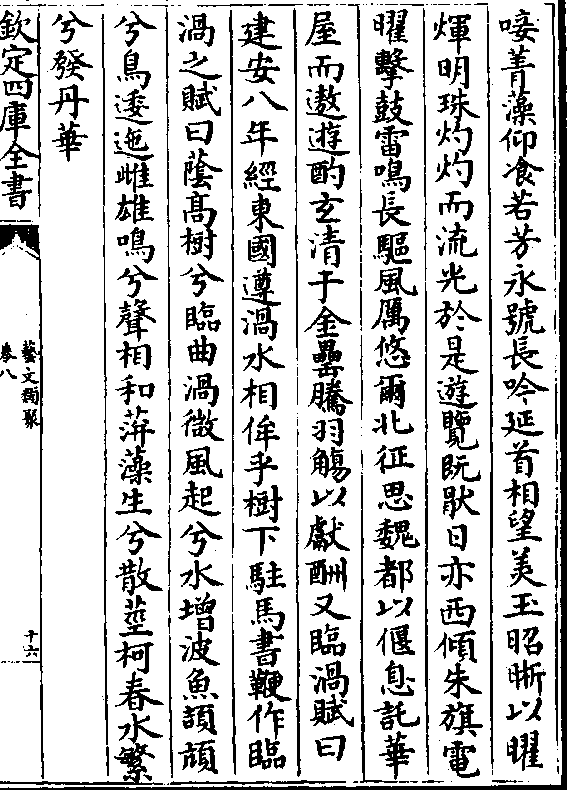 唼菁藻仰飡若芳永號長吟延首相望美玉昭晣以曜
煇明珠灼灼而流光於是遊覽既猒日亦西傾朱旗電
曜擊鼓雷鳴長驅風厲悠爾北征思魏都以偃息託華
屋而遨遊酌玄清于金罍騰羽觴以獻酬又臨渦賦曰
建安八年經東國遵渦水相佯乎樹下駐馬書鞭作臨
渦之賦曰蔭高樹兮臨曲渦微風起兮水增波魚頡頏
兮鳥逶迤雌雄鳴兮聲相和萍藻生兮散莖柯春水繁
兮發丹華
欽定四庫全書
藝文類聚
卷八
十六